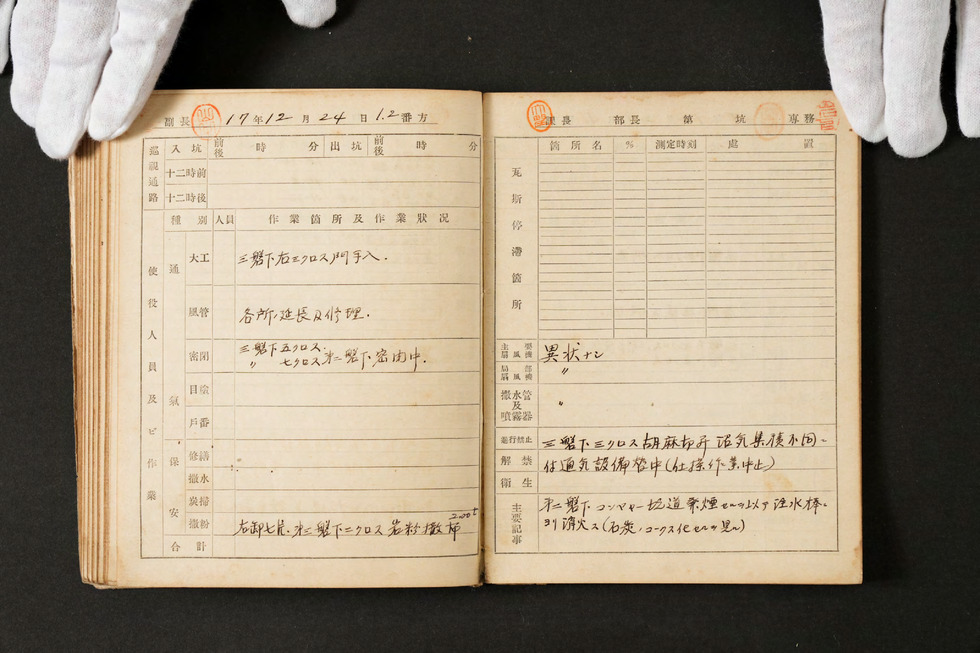 副長 17年12月24日 1.2番方
巡視通路 入坑 前後 時 分 出坑 前後 時 分
十二時前
十二時後
使役人員及ビ作業
種別 人員 作業箇所及作業狀況
通氣
大工 三盤下右三クロス門手入.
風管 各所延長及修理.
密閉 三盤下五クロス.
〃 七クロス 第二盤下密閉中.
目塗
戶番
保安
修繕
撒水
炭掃
撒粉 右卸七片. 第二盤下二クロス岩粉撒布
合計
課長 部長 第 坑 專務
瓦斯停滯箇所
箇所名 % 測定時刻 處置
主要扇風機 異狀ナシ
局部扇風機 〃
撒水管及噴霧器 〃
通行禁止 三盤下三クロス
解禁 通气設備替中(仕操作業中止)
衛生
主要記事
第二盤下コンベヤー坑道発煙
ヨリ消火ス(石炭.コークス化